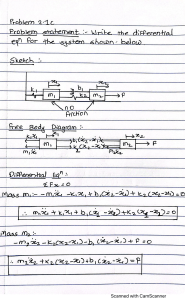 Problem 2.1c
Problem statement :- Write the differential
eqn for the system shown below
Sketch :-
k₁ m₁ b₁ k₂ m₂ F
no
friction
Free Body Diagram :-
k₁x₁ m₁ b₁(ẋ₂-ẋ₁) k₂(x₂-x₁) m₂ F
m₁ẍ₁ m₂ẍ₂
Differential Eqn :-
ΣFx=0
Mass m₁ :- -m₁ẍ₁-k₁x₁+b₁(ẋ₂-ẋ₁)+k₂(x₂-x₁)=0
∴ m₁ẍ₁+k₁x₁+b₁(ẋ₁-ẋ₂)+k₂(x₁-x₂)=0
Mass m₂ :-
-m₂ẍ₂-k₂(x₂-x₁)-b₁(ẋ₂-ẋ₁)+F=0
∴ m₂ẍ₂+k₂(x₂-x₁)+b₁(ẋ₂-ẋ₁)=F
Scanned with CamScanner